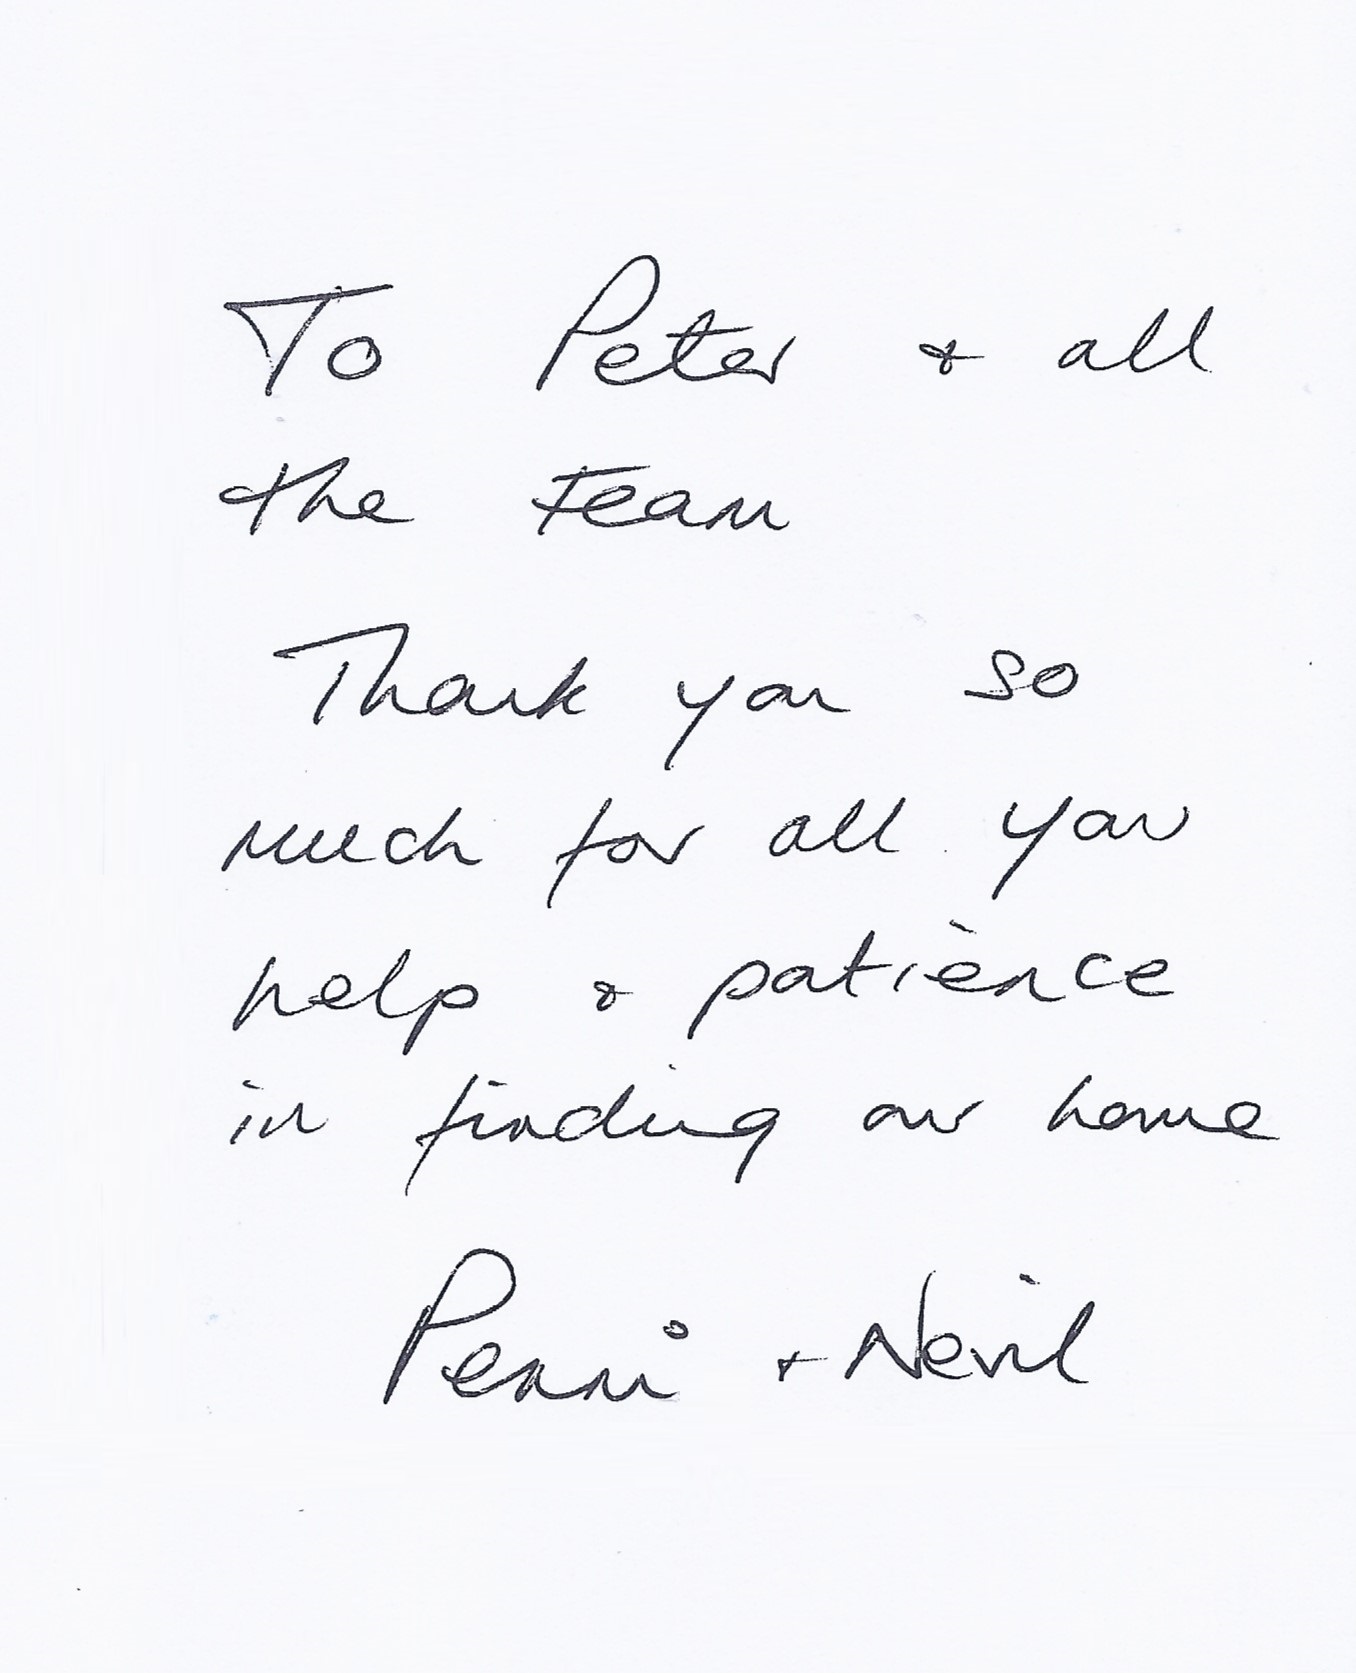 To Peter & all
the team
Thank you so
much for all your
help & patience
in finding our home
Penni + Nevil